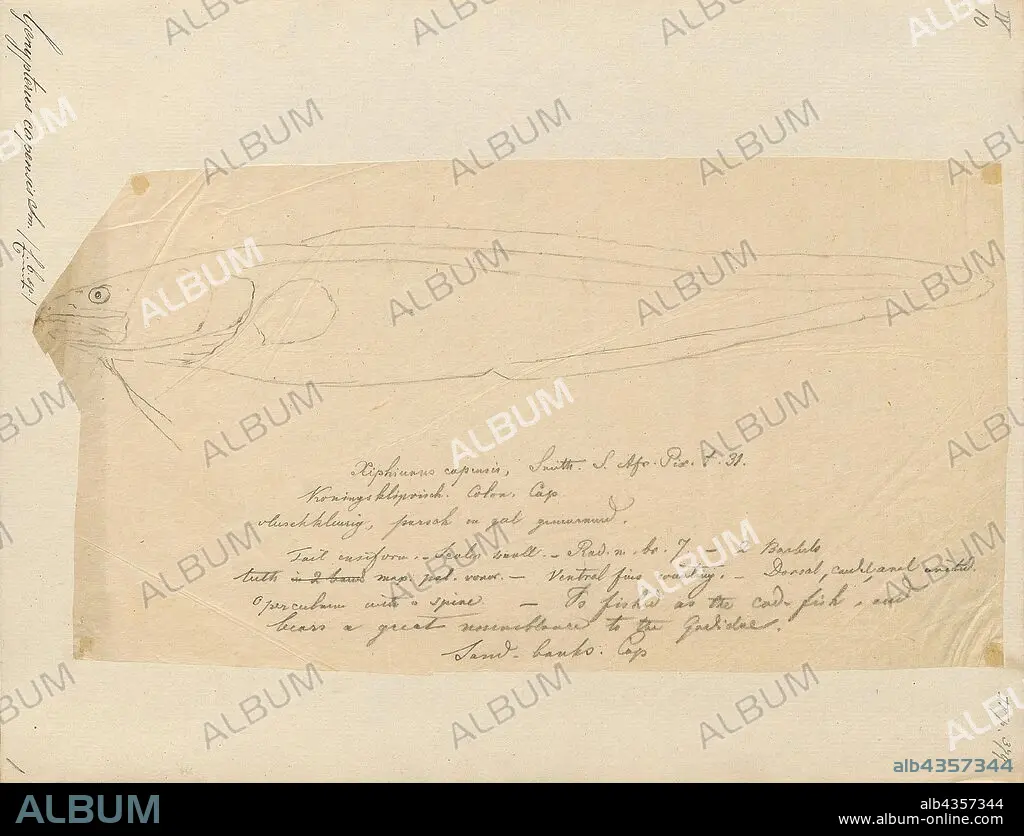 IV
10
Genypterus capensis Sm.
Xiphiurus capensis, Smith. S. Afr. Pix. t. 31.
Koningsklipvisch. Colon. Cap
vleeschkleurig, paersch en gel gemarmerd.
Tail ensiform. - Scales small. - Rad. m. br. 7 - 2 Barbels
teeth in 2 band max. pal. vomer. - Ventral fins wanting. - Dorsal, caudal, anal united.
Operculum with a spine - Is fished as the cod-fish, and
bears a great resemblance to the Gadidae.
Sand-banks. Cap
1
ALBUM
alb4357344
ALBUM
alb4357344
www.album-online.com